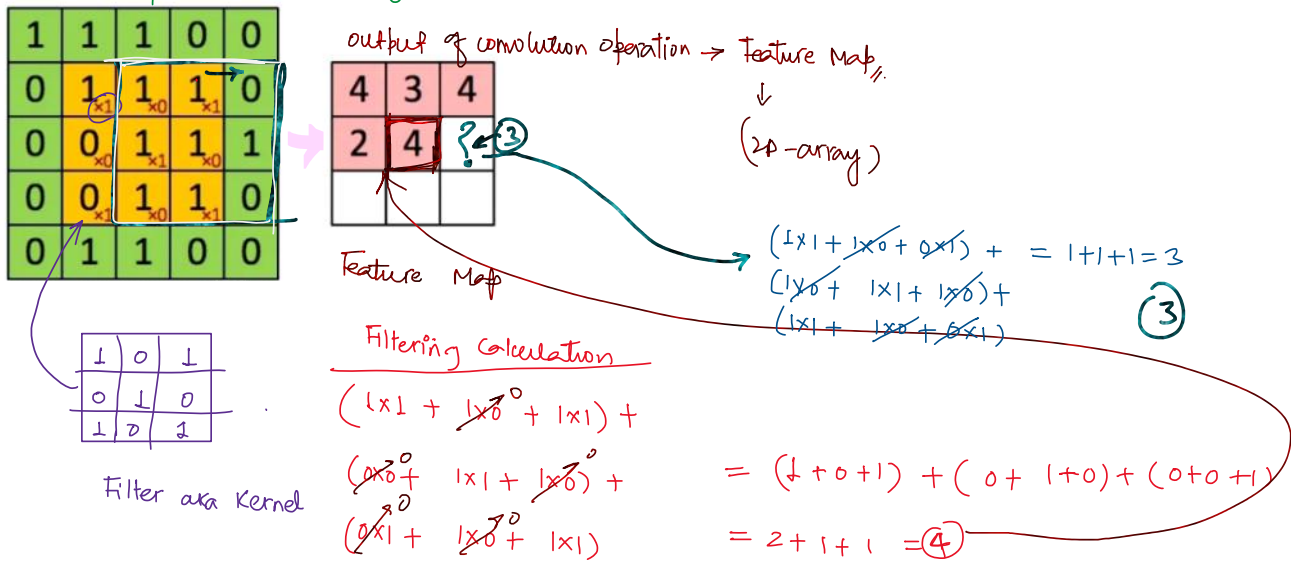 1 1 1 0 0
0 1×1 1×0 1×1 0
0 0×0 1×1 1×0 1
0 0×1 1×0 1×1 0
0 1 1 0 0
output of convolution operation → Feature Map
↓
(2D-array)
4 3 4
2 4 ? ← 3
Feature Map
(1x1 + 1x0 + 0x1) + = 1+1+1=3
(1x0 + 1x1 + 1x0) +
(1x1 + 1x0 + 0x1)
3
1 0 1
0 1 0
1 0 1
Filter aka Kernel
Filtering Calculation
(1x1 + 1x0 0 + 1x1) +
(0x0 0 + 1x1 + 1x0 0) + = (1+0+1) + (0+ 1+0) + (0+0+1)
(0x1 0 + 1x0 0 + 1x1) = 2+1+1 = 4